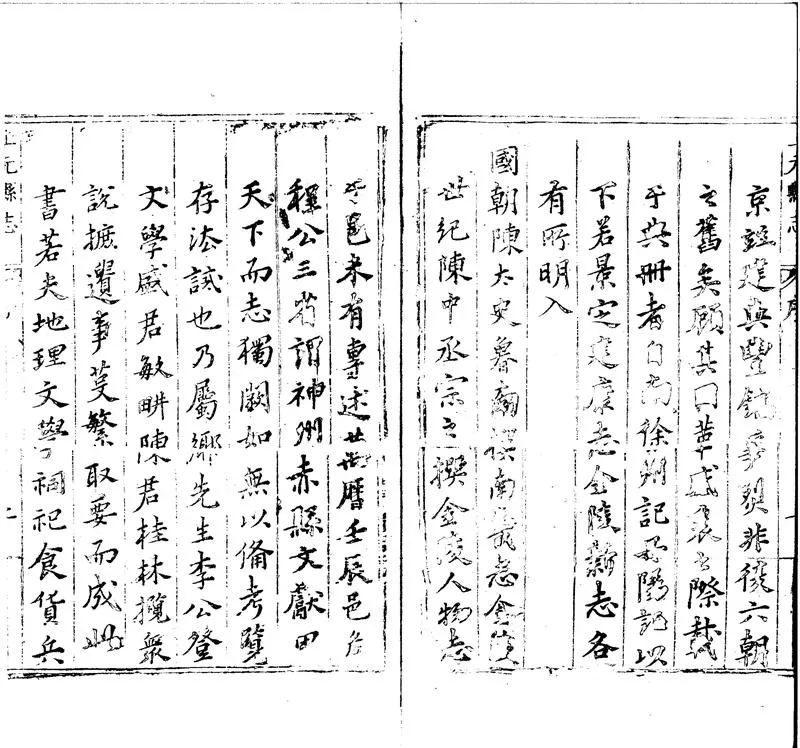 上元縣志
京 建與豐鎬 非後六朝
之舊矣顧其 革 之際載
于典冊者自 徐 記 以
下若景定建康志金陵新志各
有所明入
國朝陳太史魯南撰南畿志金陵
世紀陳中丞宗之撰金陵人物志
邑未有專述萬曆壬辰邑
程公三省謂神州赤縣文獻甲
天下而志獨闕如無以備考覽
存法誡也乃屬鄉先生李公登
文學盛君敏畊陳君桂林攬衆
說摭遺事芟繁取要而成此
書若夫地理文學祠祀食貨兵
上元縣志